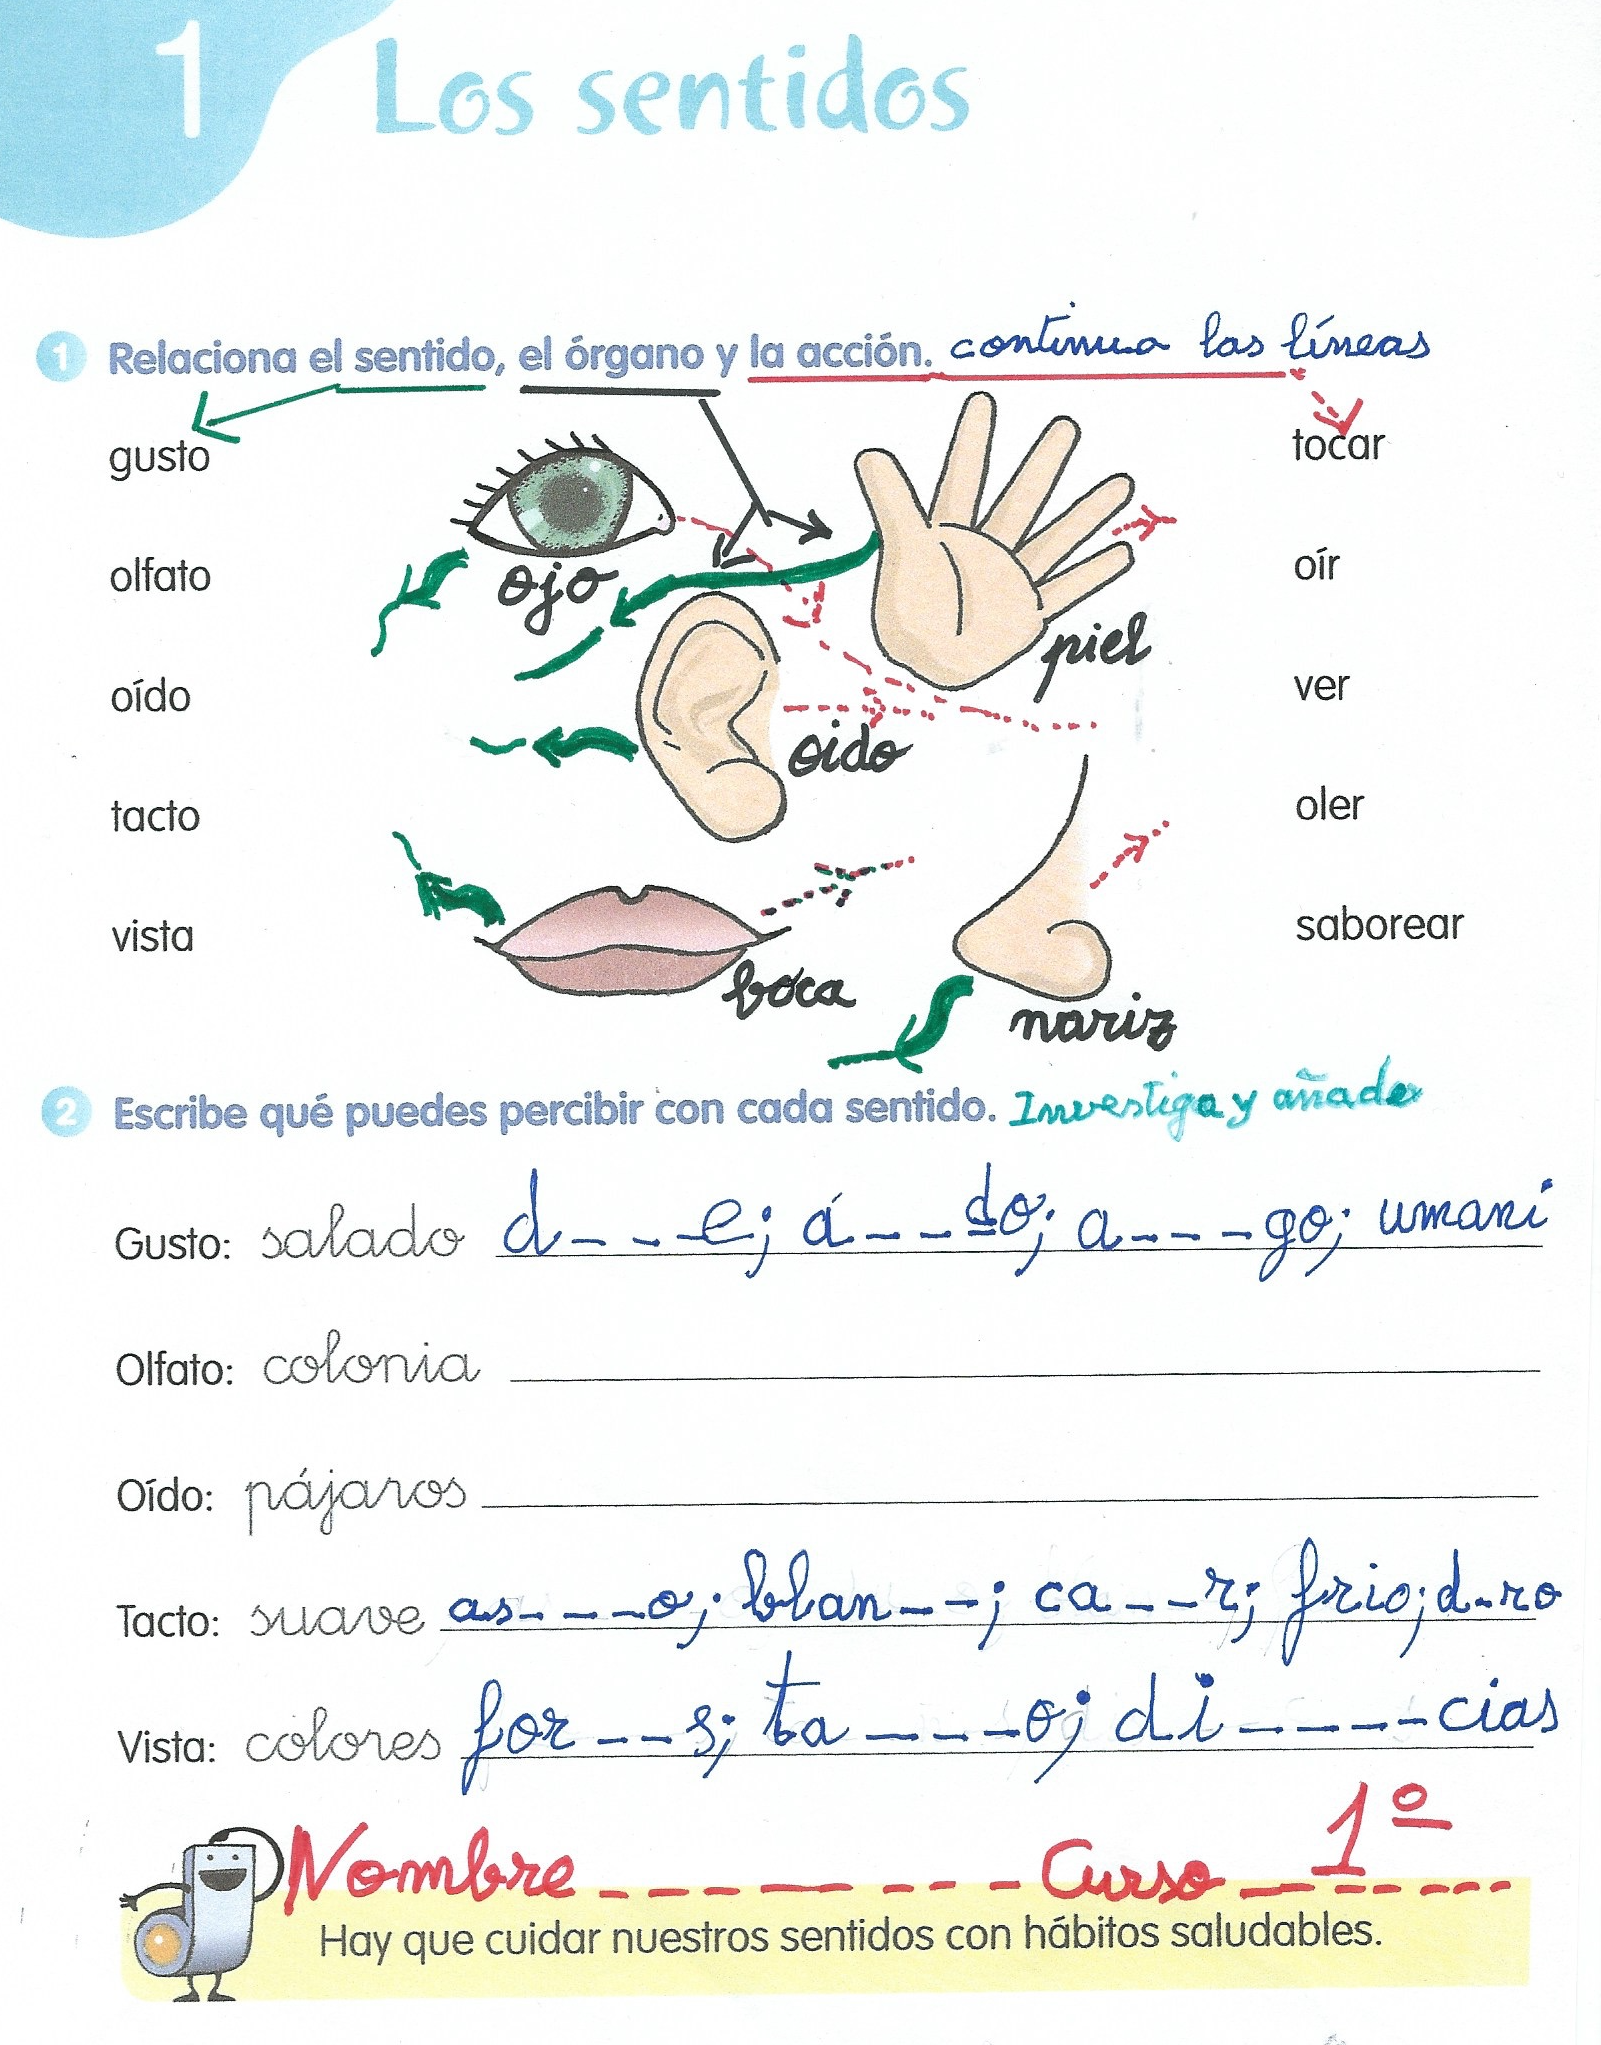 1 Los sentidos
1 Relaciona el sentido, el órgano y la acción. continua las líneas
gusto tocar
olfato ojo oír
piel
oído ver
oido
tacto oler
vista saborear
boca
nariz
2 Escribe qué puedes percibir con cada sentido. Investiga y añade
Gusto: salado d_ _ _e; á_ _do; a_ _ _go; umami
Olfato: colonia
Oído: pájaros
Tacto: suave as_ _ _o; blan_ _; ca_ _r; frio; d_ro
Vista: colores for_ _s; ta_ _ _o; di_ _ _ _cias
Nombre _ _ _ _ _ _ _ Curso 1º
Hay que cuidar nuestros sentidos con hábitos saludables.